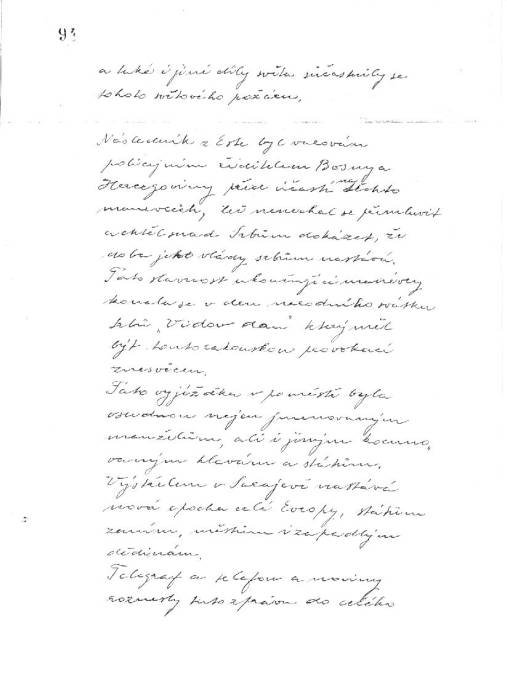 93
a také i jiné díly světa súčastnily se
tohoto světového požáru.
Následník z Este byl varován
policejním ředitelem Bosny a
Hercegoviny před účastí na těchto
manevrech, leč nenechal se přemluvit
a chtěl snad Srbům dokázat, že
doba jeho vlády srbům nastává.
Tato slavnost ukončující manévry
konala se v den národního svátku
Srbů „Vidov dan" který měl
být touto rakouskou provokací
znesvěcen.
Tato vyjížďka v poměstí byla
osudnou nejen jmenovaným
manželům, ali i jiným korunovaným
hlavám a státům.
Výstřelem v Sarajevě nastává
nová epocha celé Evropy, státům
zemím, městům i zapadlým
dědinám.
Telegraf a telefon a noviny
roznesly tuto zprávu do celého